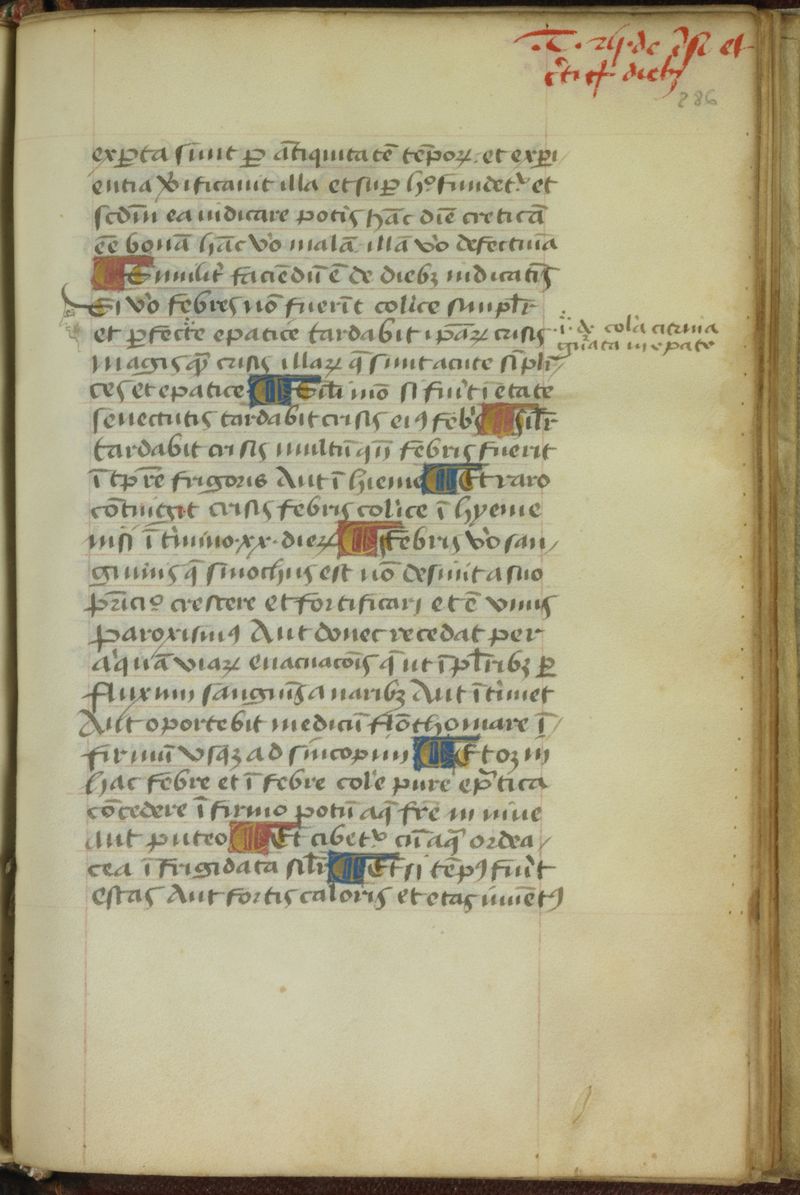 .T. 2us. de c̃si et
c̃tic̃ dieb₃
286
exp̱ta sunt p̱ ãtiquitatē tēpoꝝ. et exp̱i/
entia v̾ificavit illa et sup̱ hº fundet᷑ et
scd̄m ea iudicare potis hāc diē creticā
ēe bonā hāc v̾o malā illā v̾o defectiuā
¶ Simili᷑ faciēdū ē de dieb₃ indicatis
Si v̾o febres nō fuerīt col̾ice simpl̄r
et p̱fecte epatice tardabit ip̄aꝝ crisis
magis qᷓ crisis illaꝝ q̄ sunt acute sīpli/
ces et epatice ¶ Sil̾i mō si fu̾it ī etate
senectutis tardabit crisis eiꝰ feb̾s ¶ Sil̄r
tardabit crisis multū qn̄ febris fuerit
ī tp̄re frigoris Aut ī hieme ¶ Et raro
cōtingit crisis febris col̾ice ī hyeme
nisi ī t̾mino .xx. dieꝝ ¶ Febris v̾o san/
guinis q̄ sinochus est nō desinit a suo
pr̄ici° crescere et fortificari et ē vnus
paroxismꝰ Aut donec recedat per
aliquā viaꝝ euacuacōis q̄ ut ī pl̄rib₃ p̱
fluxum sanguis a narib₃ Aut īt̾imet
Aut oportebit medicū flōthomare ī/
firmū vsq₃ ad sincopim ¶ Et o₃ in
hac febre et ī febre col̾e pure epᷓtica
cōcedere īfirmo potū aq̄ fr̄e in niue
aut puteo ¶ Et cibet᷑ cū aq̄ ordea/
cea īfrigidata sil̄r ¶ Et si tēpꝰ fu̾it
estas Aut fortis caloris et etas iuuētꝰ
.i. de col̾a citrina
gn̾ata in epate